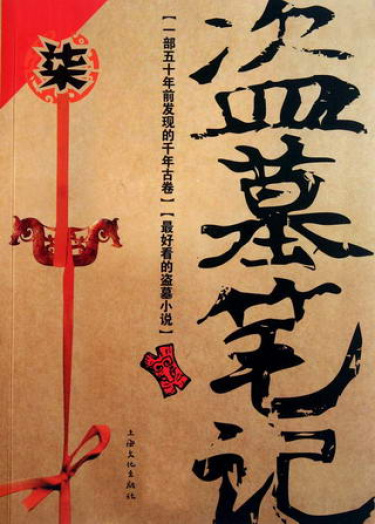 盗墓笔记
【一部五十年前发现的千年古卷】【最好看的盗墓小说】
柒
上海文化出版社